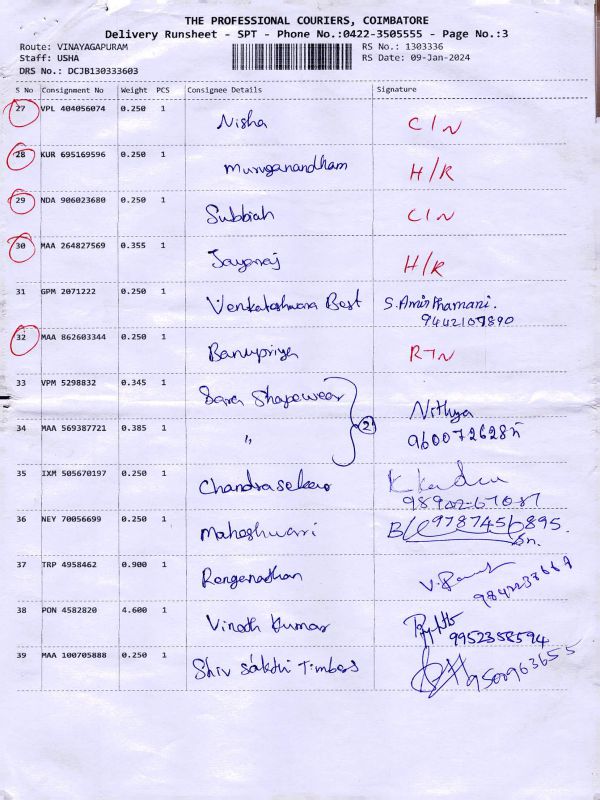 THE PROFESSIONAL COURIERS, COIMBATORE
Delivery Runsheet - SPT - Phone No.:0422-3505555 - Page No.:3
Route: VINAYAGAPURAM RS No.: 1303336
Staff: USHA RS Date: 09-Jan-2024
DRS No.: DCJB130333603
S No Consignment No Weight PCS Consignee Details Signature
27 VPL 404056074 0.250 1 Nisha C/N
28 KUR 695169596 0.250 1 Muruganandham H/R
29 NDA 906023680 0.250 1 Subbiah C/N
30 MAA 264827569 0.355 1 Jayaraj H/R
31 GPM 2071222 0.250 1 Venkateshwara Best S. Amir
9442107890
32 MAA 862603344 0.250 1 Banupriya RTN
33 VPM 5298832 0.345 1 Sara Shapewear
2 Nithya
34 MAA 569387721 0.385 1 "
35 IXM 505670197 0.250 1 Chandrasekar
36 NEY 70056699 0.250 1 Maheshwari 9787456895
37 TRP 4958462 0.900 1 Renganathan
38 PON 4582820 4.600 1 Vinoth Kumar
9952358594
39 MAA 100705888 0.250 1 Shiv sakthi Timbers